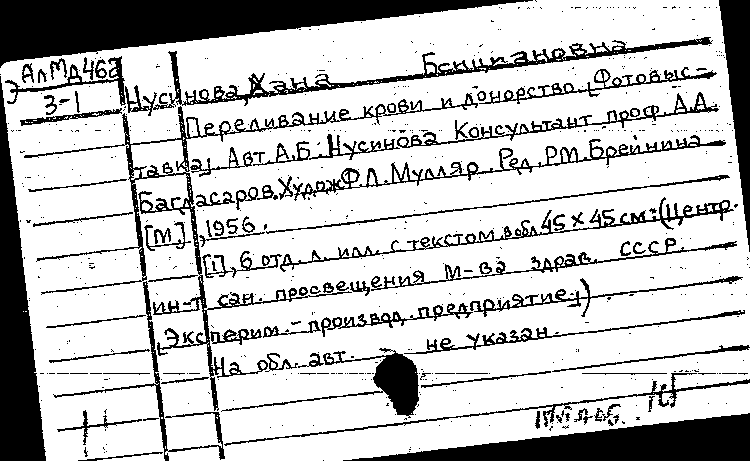 ЭАлМд462
3-1
Нусинова, Хана Бенциановна
Переливание крови и донорство. [Фотовыс-
тавка]. Авт. А.Б. Нусинова Консультант проф. А.А.
Багдасаров. Худож Ф.Л. Мулляр. Ред. Р.М. Брейнина
[М.], 1956.
[1], 6 отд. л. илл. с текстом в обл. 45 × 45 см. (Центр.
ин-т сан. просвещения М-ва здрав. СССР.
[Эксперим.-производ. предприятие])
На обл. авт. не указан.